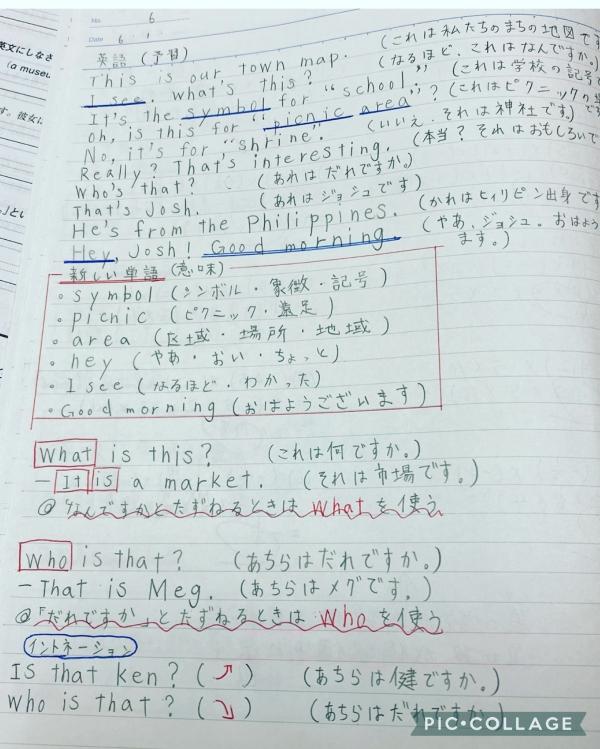 英文にしなさ
(a museu
す。彼女に
No.
6
Date 6 ・ 1 ・
英語 (予習)
This is our town map. (これは私たちのまちの地図です
I see. What's this? (なるほど、これはなんですか。)
It's the symbol for "school." (これは学校の記号で
Oh, is this for "picnic area"? (これはピクニックの
No, it's for "shrine". (いいえ、それは神社です。)
Really? That's interesting. (本当? それはおもしろいで
Who's that? (あれはだれですか。)
That's Josh. (あれはジョシュです)
He's from the Philippines. (かれはヒィリピン出身です
Hey, Josh! Good morning. (やあ、ジョシュ。おはよう
ます。)
新しい単語 (意味)
・symbol (シンボル・象徴・記号)
・picnic (ピクニック・遠足)
・area (区域・場所・地域)
・hey (やあ・おい・ちょっと)
・I see (なるほど・わかった)
・Good morning (おはようございます)
What is this? (これは何ですか。)
- It is a market. (それは市場です。)
@「なんですかとたずねるときは What を使う
Who is that? (あちらはだれですか。)
- That is Meg. (あちらはメグです。)
@「だれですか」とたずねるときは Who を使う
イントネーション
Is that ken? (↗) (あちらは健ですか。)
Who is that? (↘) (あちらはだれですか。)
PIC•COLLAGE